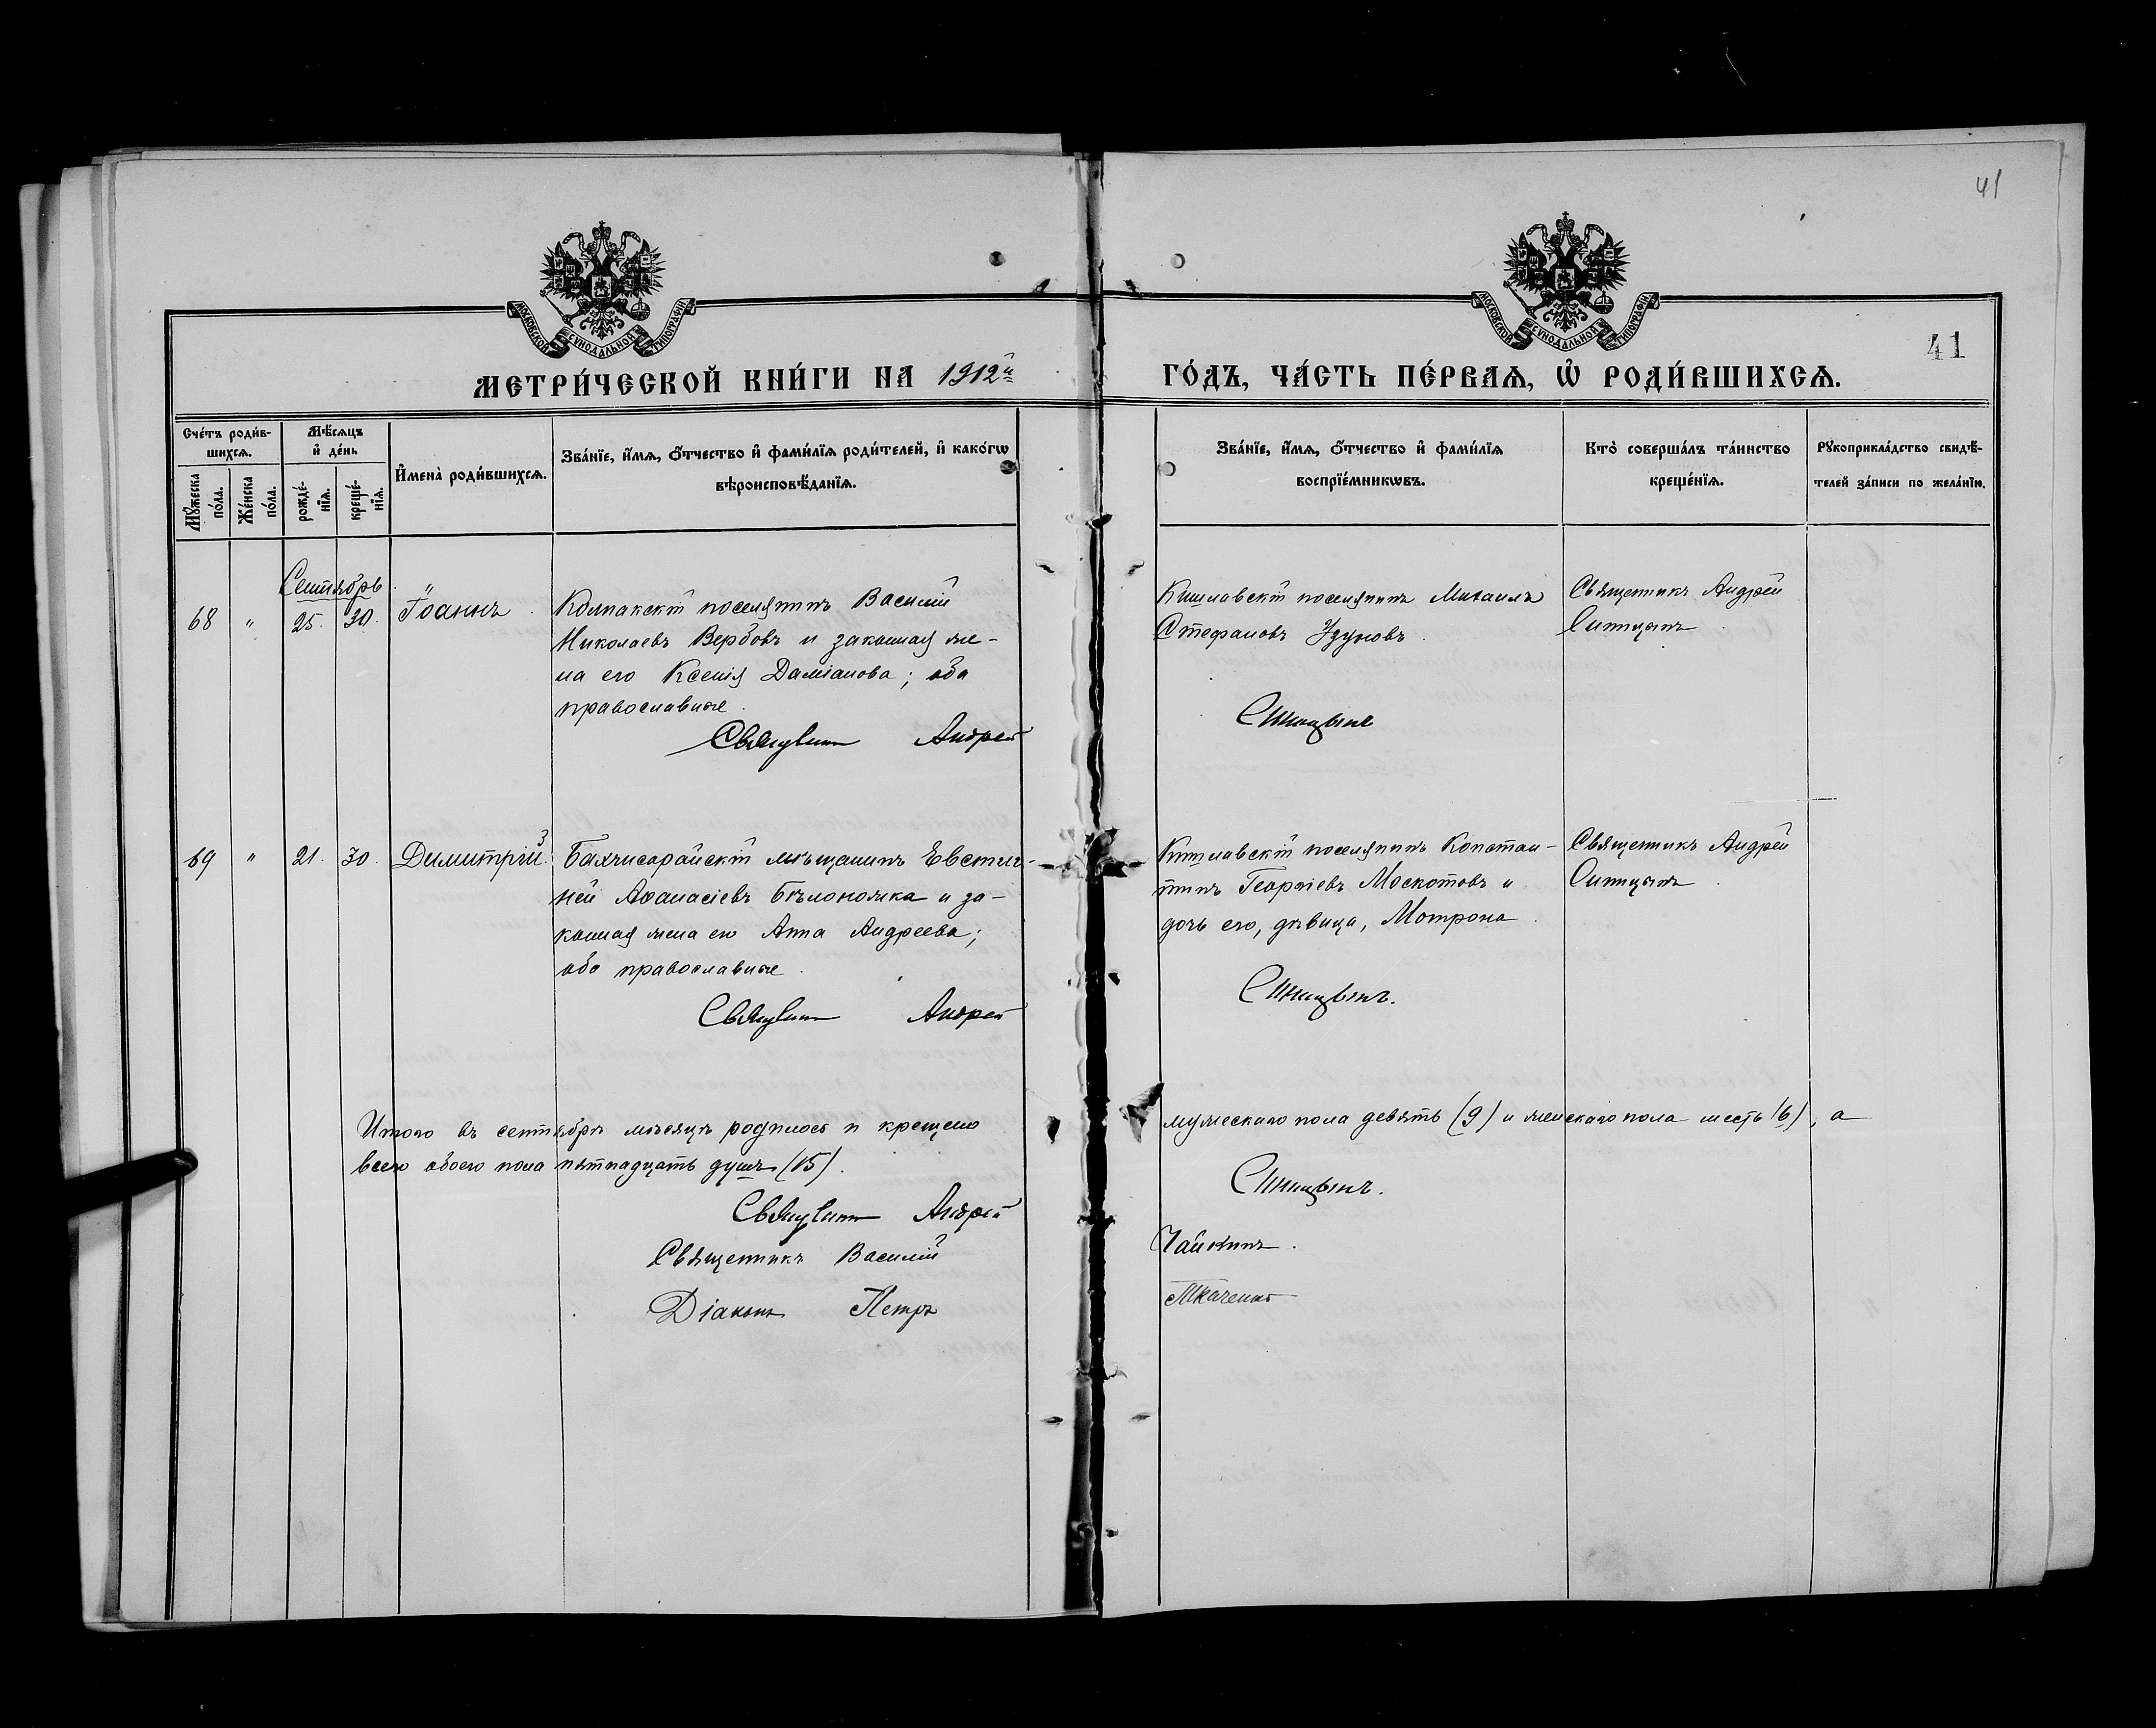 41
МОСКОВСКОЙ СУНОДАЛЬНОЙ ТИПОГРАФІИ
МОСКОВСКОЙ СУНОДАЛЬНОЙ ТИПОГРАФІИ
41
МЕТРИ́ЧЕСКОЙ КНИ́ГИ НА 1912й
ГО́ДЪ, ЧА́СТЬ ПЕ́РВАѦ, Ѡ҆ РОДИ́ВШИХСѦ.
Сче́тъ роди́в-
шихсѧ.
Мѣ́сѧцъ
и҆ де́нь
И҆мена̀ роди́вшихсѧ.
Зва́нїе, и҆́мѧ, ѻ҆́тчество и҆ фами́лїѧ роди́телей, и҆ како́гѡ
вѣроисповѣ́данїѧ.
Мꙋ́жеска
по́ла.
Же́нска
по́ла.
рожде́-
нїѧ.
креще́-
нїѧ.
Зва́нїе, и҆́мѧ, ѻ҆́тчество и҆ фами́лїѧ
воспрїе́мникѡвъ.
Кто̀ соверша́лъ та́инство
креще́нїѧ.
Рꙋкоприкла́дство свидѣ́-
телей за́писи по жела́нїю.
Сентябрь
68 " 25. 30. Іоаннъ.
Колпакскій поселянинъ Василій
Николаевъ Вербовъ и законная же-
на его Ксенія Даміанова; оба
православные.
Священникъ Андрей
Кишлавскій поселянинъ Михаилъ
Стефановъ Узуновъ.
Синицынъ
Священникъ Андрей
Синицынъ.
69 " 21. 30. Димитрій.
3
Бахчисарайскій мѣщанинъ Евстиг-
ней Аѳанасіевъ Бѣлоножка и за-
конная жена его Анна Андреева;
оба православные.
Священникъ Андрей
Кишлавскій поселянинъ Констан-
тинъ Георгіевъ Москотовъ и
дочь его, дѣвица, Мотрона.
Синицынъ.
Священникъ Андрей
Синицынъ.
Итого въ сентябрѣ мѣсяцѣ родилось и крещено
мужескаго пола девять (9) и женскаго пола шесть (6), а
всего обоего пола пятнадцать душъ (15).
Священникъ Андрей
Синицынъ.
Священникъ Василій
Чайкинъ.
Діаконъ Петръ
Ткаченко